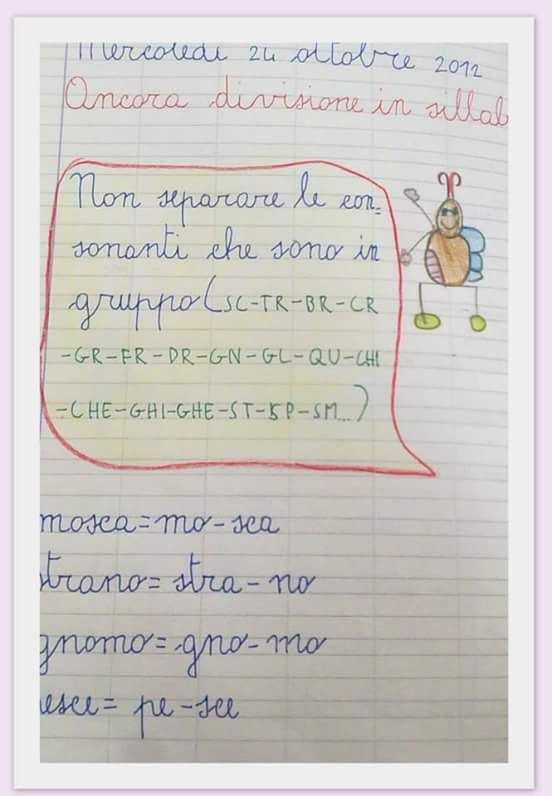 Mercoledì 24 ottobre 2012
Ancora divisione in sillab
Non separare le con=
sonanti che sono in
gruppo (SC-TR-BR-CR
-GR-FR-DR-GN-GL-QU-CHI
-CHE-GHI-GHE-ST-SP-SM...)
mosca=mo-sca
strano=stra-no
gnomo=gno-mo
esce=pe-sce